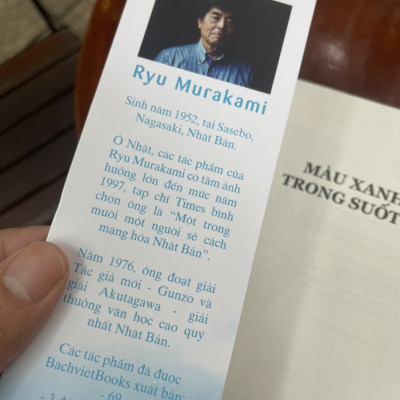 Ryu Murakami
Sinh năm 1952, tại Sasebo,
Nagasaki, Nhật Bản.
Ở Nhật, các tác phẩm của
Ryu Murakami có tầm ảnh
hưởng lớn đến mức năm
1997, tạp chí Times bình
chọn ông là “Một trong
mười một người sẽ cách
mạng hóa Nhật Bản”.
Năm 1976, ông đoạt giải
Tác giả mới - Gunzo và
giải Akutagawa - giải
thưởng văn học cao quý
nhất Nhật Bản.
Các tác phẩm đã được
BachvietBooks xuất bản:
- 69
MÀU XANH
TRONG SUỐT